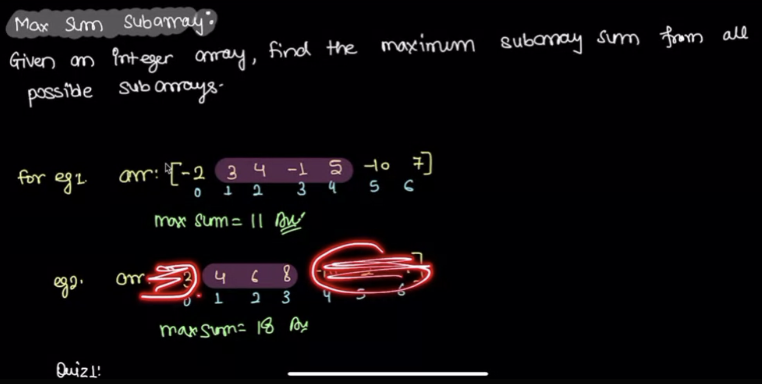 Max Sum Subarray:
Given an integer array, find the maximum subarray sum from all
possible subarrays.
for eg1. arr: [-2 3 4 -1 5 -10 7]
0 1 2 3 4 5 6
max sum = 11 Ans
eg2. arr 4 6 8
0 1 2 3 4 5 6
max sum = 18 Ans
Quiz1: